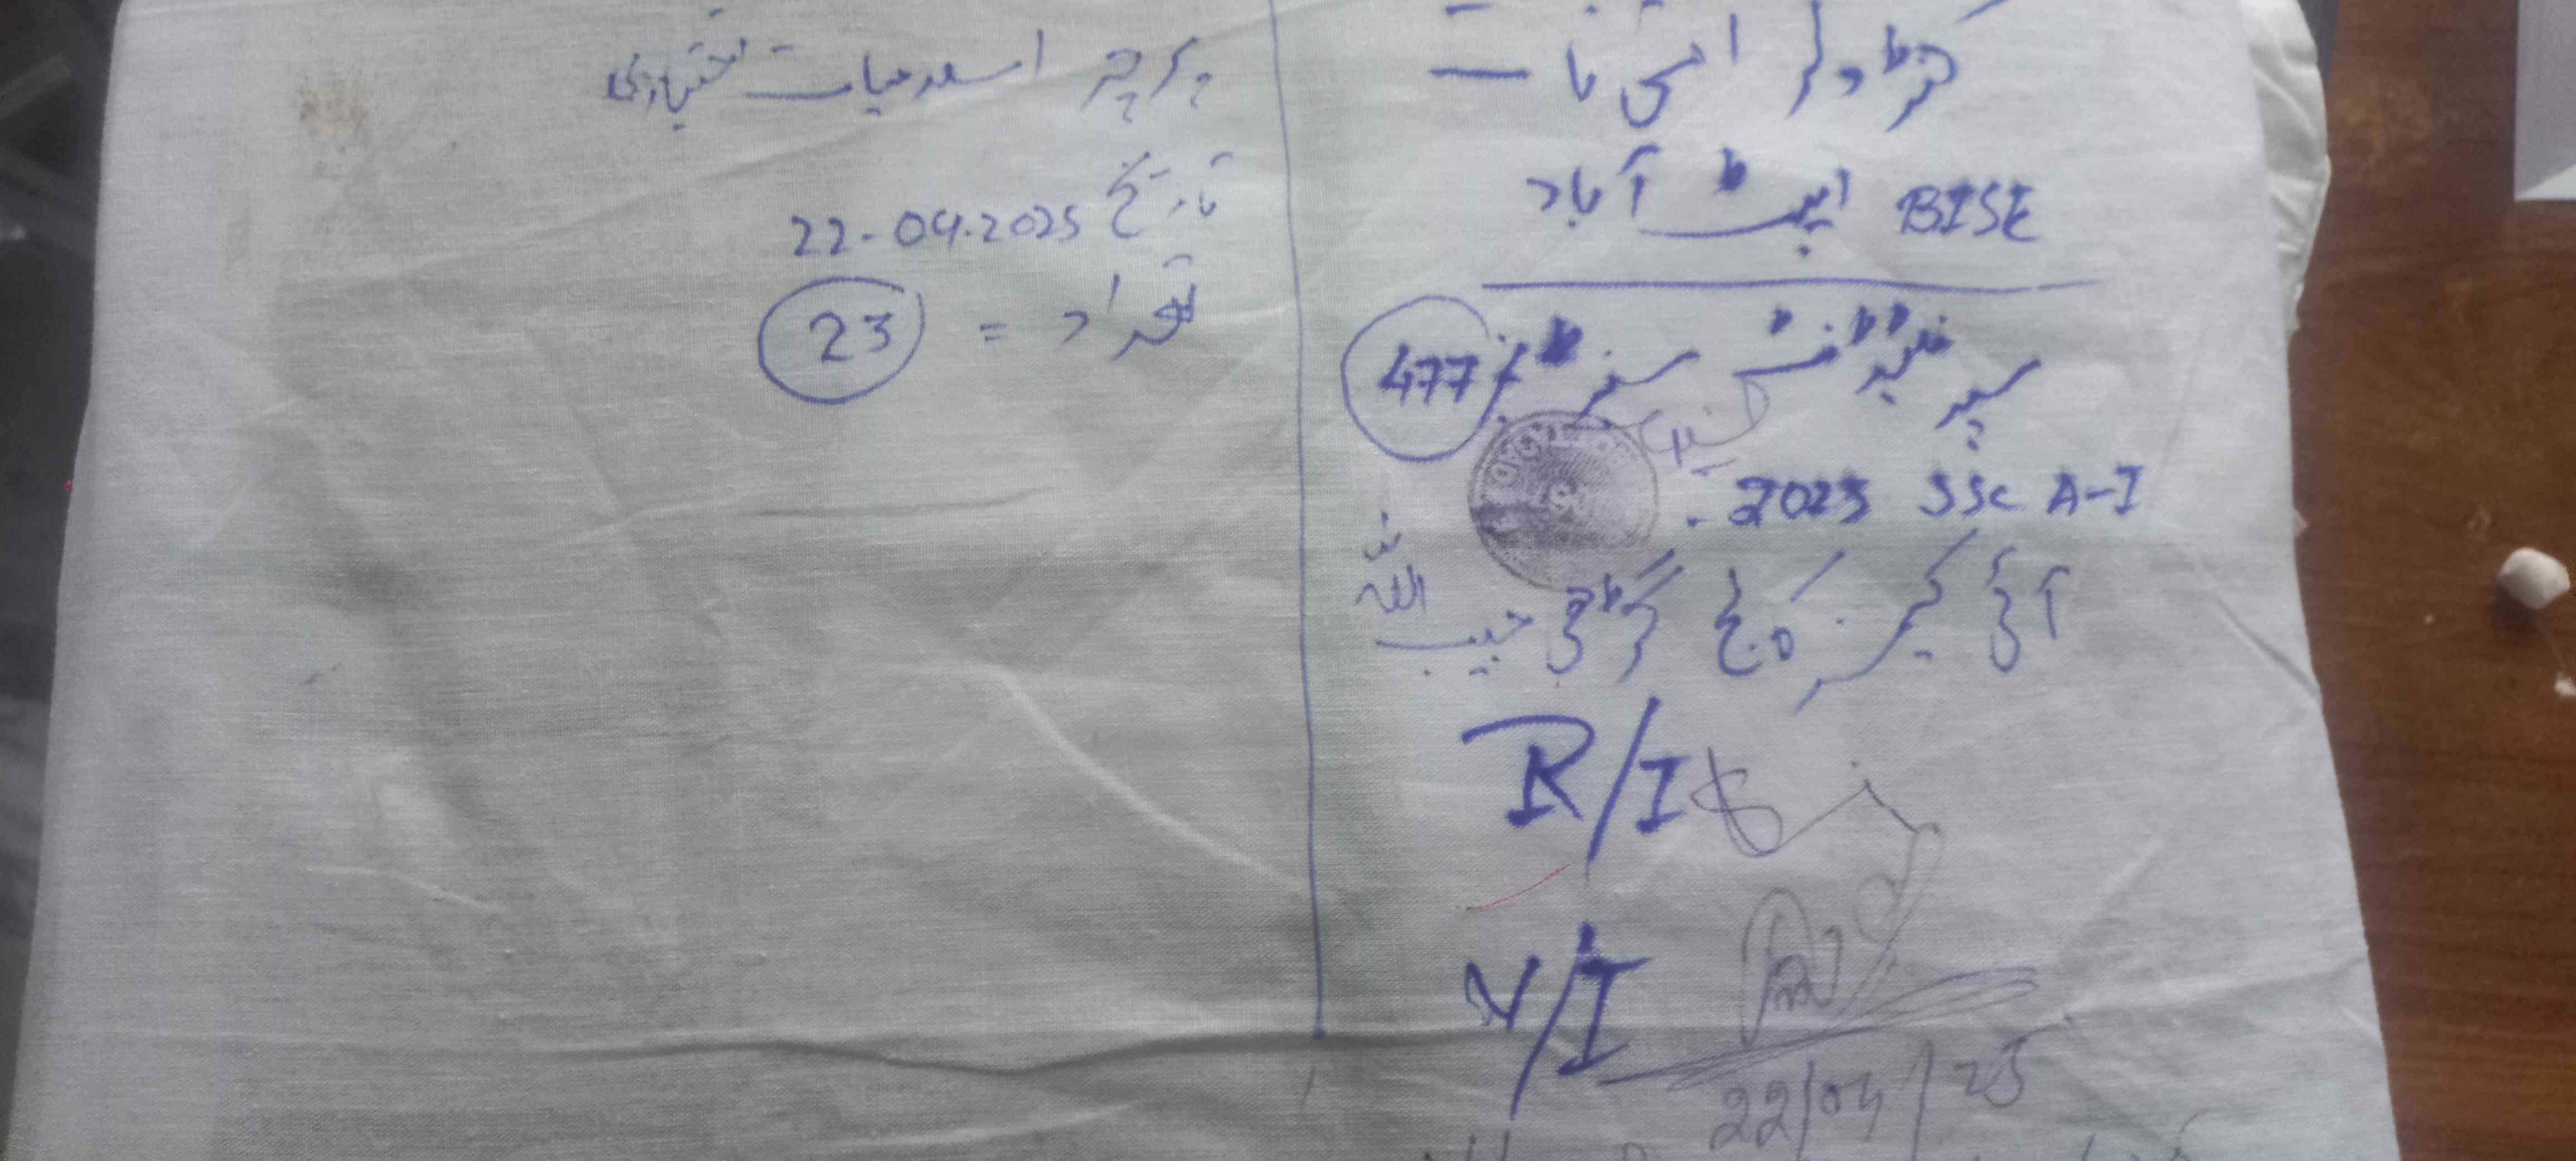 کنٹرولر امتحانات
BISE ایبٹ آباد
سپرنٹنڈنٹ سنٹر نمبر 477
2025 SSC A-I
آئی کیئر کالج گڑھی حبیب اللہ
R/I
V/I
22/04/25
پرچہ اسلامیات اختیاری
تاریخ 22-04-2025
تعداد = 23